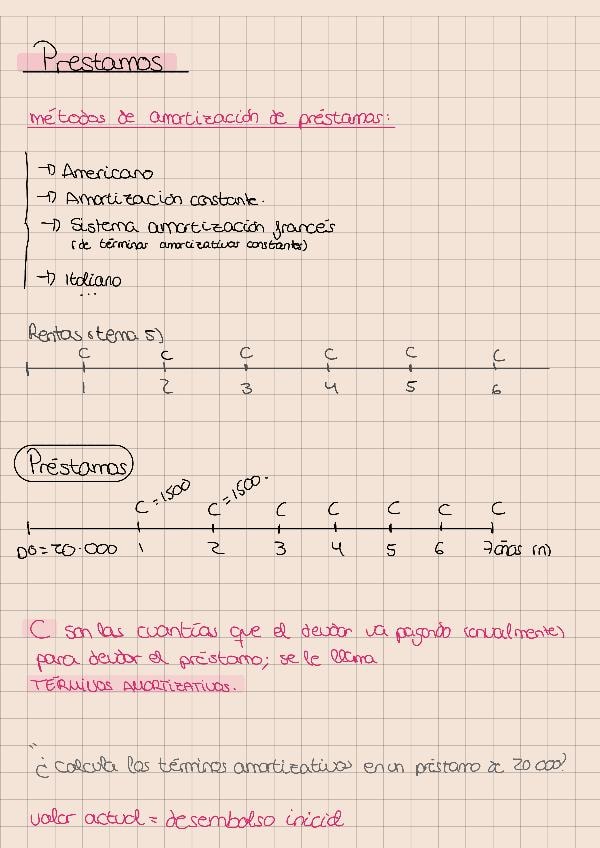 Prestamos
métodos de amortización de préstamos:
→ Americano
→ Amortización constante.
→ Sistema amortización francés
(de términos amortizativos constantes)
→ Italiano
...
Rentas (tema 5)
C C C C C C
1 2 3 4 5 6
Préstamos
C = 1500 C = 1500. C C C C C
D0 = 20.000 1 2 3 4 5 6 7 años (n)
C son las cuantías que el deudor va pagando (anualmente)
para deudor el préstamo; se le llama
TÉRMINOS AMORTIZATIVOS.
"¿ calcula los términos amortizativos en un préstamo de 20 000?
valor actual = desembolso inicial